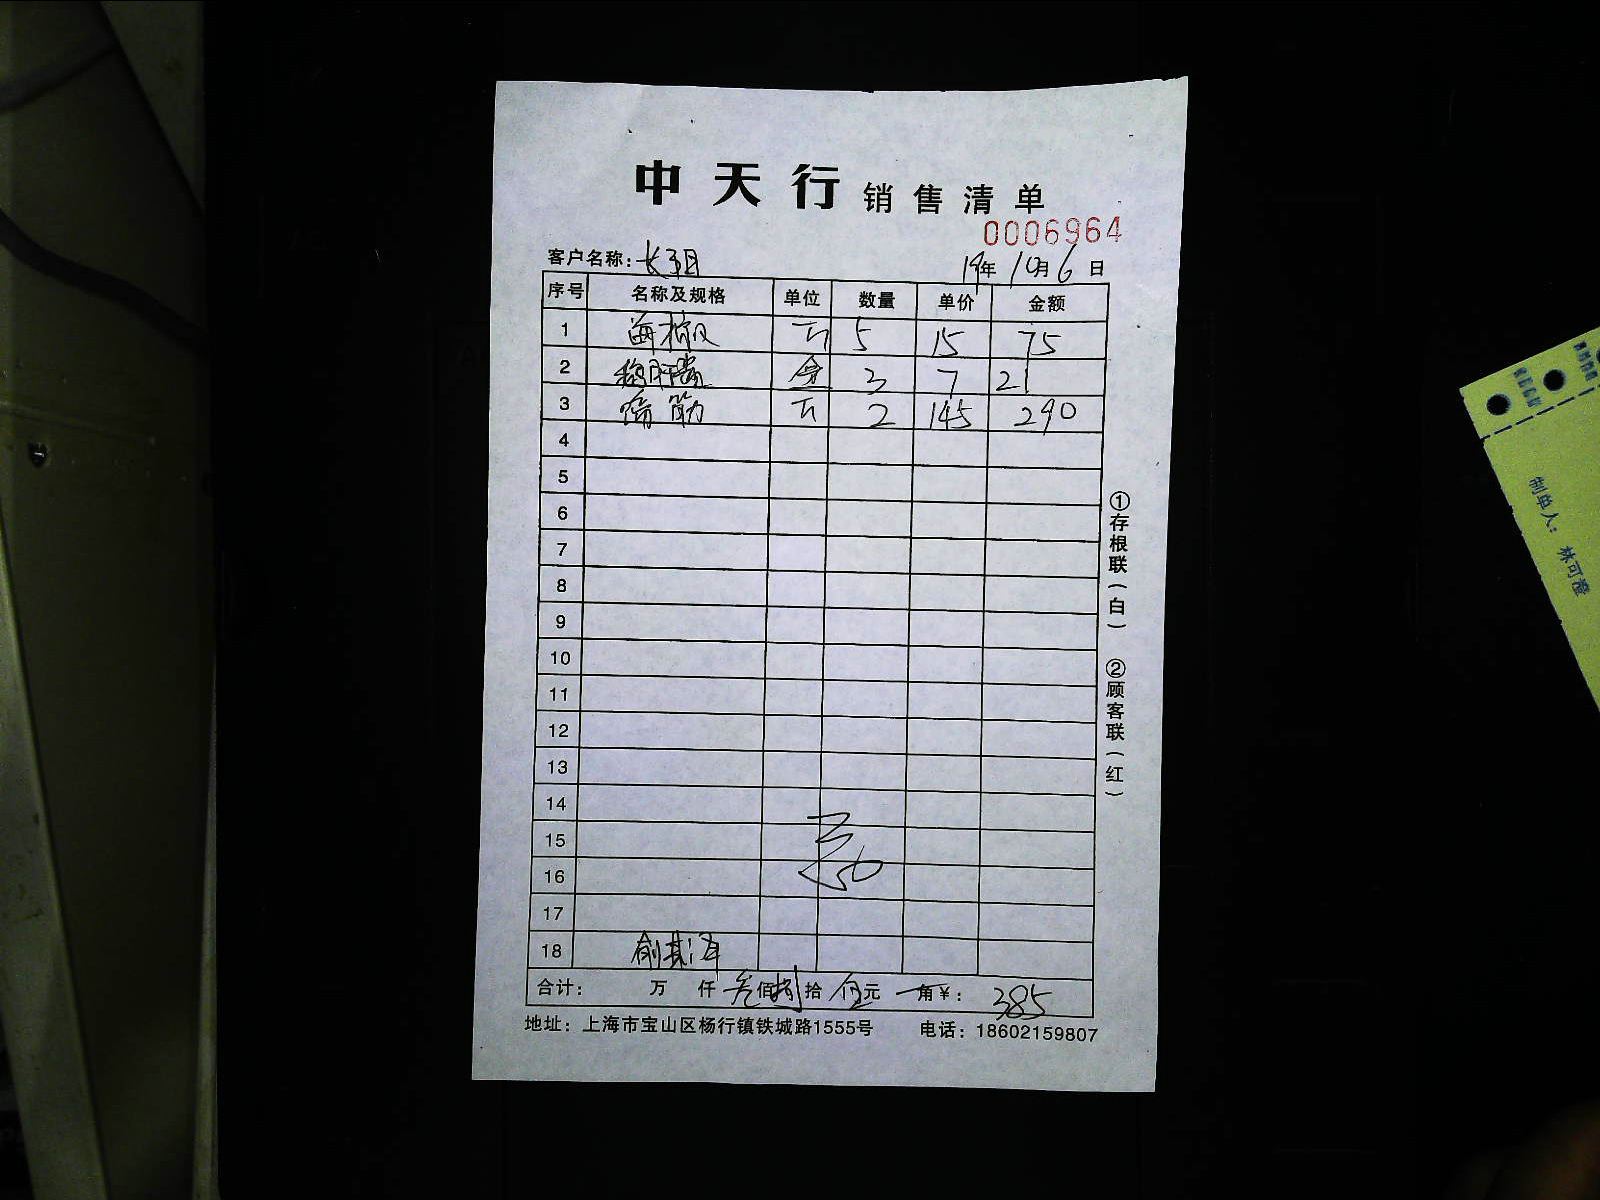 中天行 销售清单
0006964
客户名称: 长阳 19年10月6日
序号 名称及规格 单位 数量 单价 金额
1 海椒 5 15 75
2 3 7 21
3 蹄筋 2 145 290
4
5
6
7
8
9
10
11
12
13
14
15
16
17
18
合计: 万 仟 叁佰捌拾伍元 角¥: 385
地址: 上海市宝山区杨行镇铁城路1555号 电话: 18602159807
①存根联(白) ②顾客联(红)
制单人: 林可橙